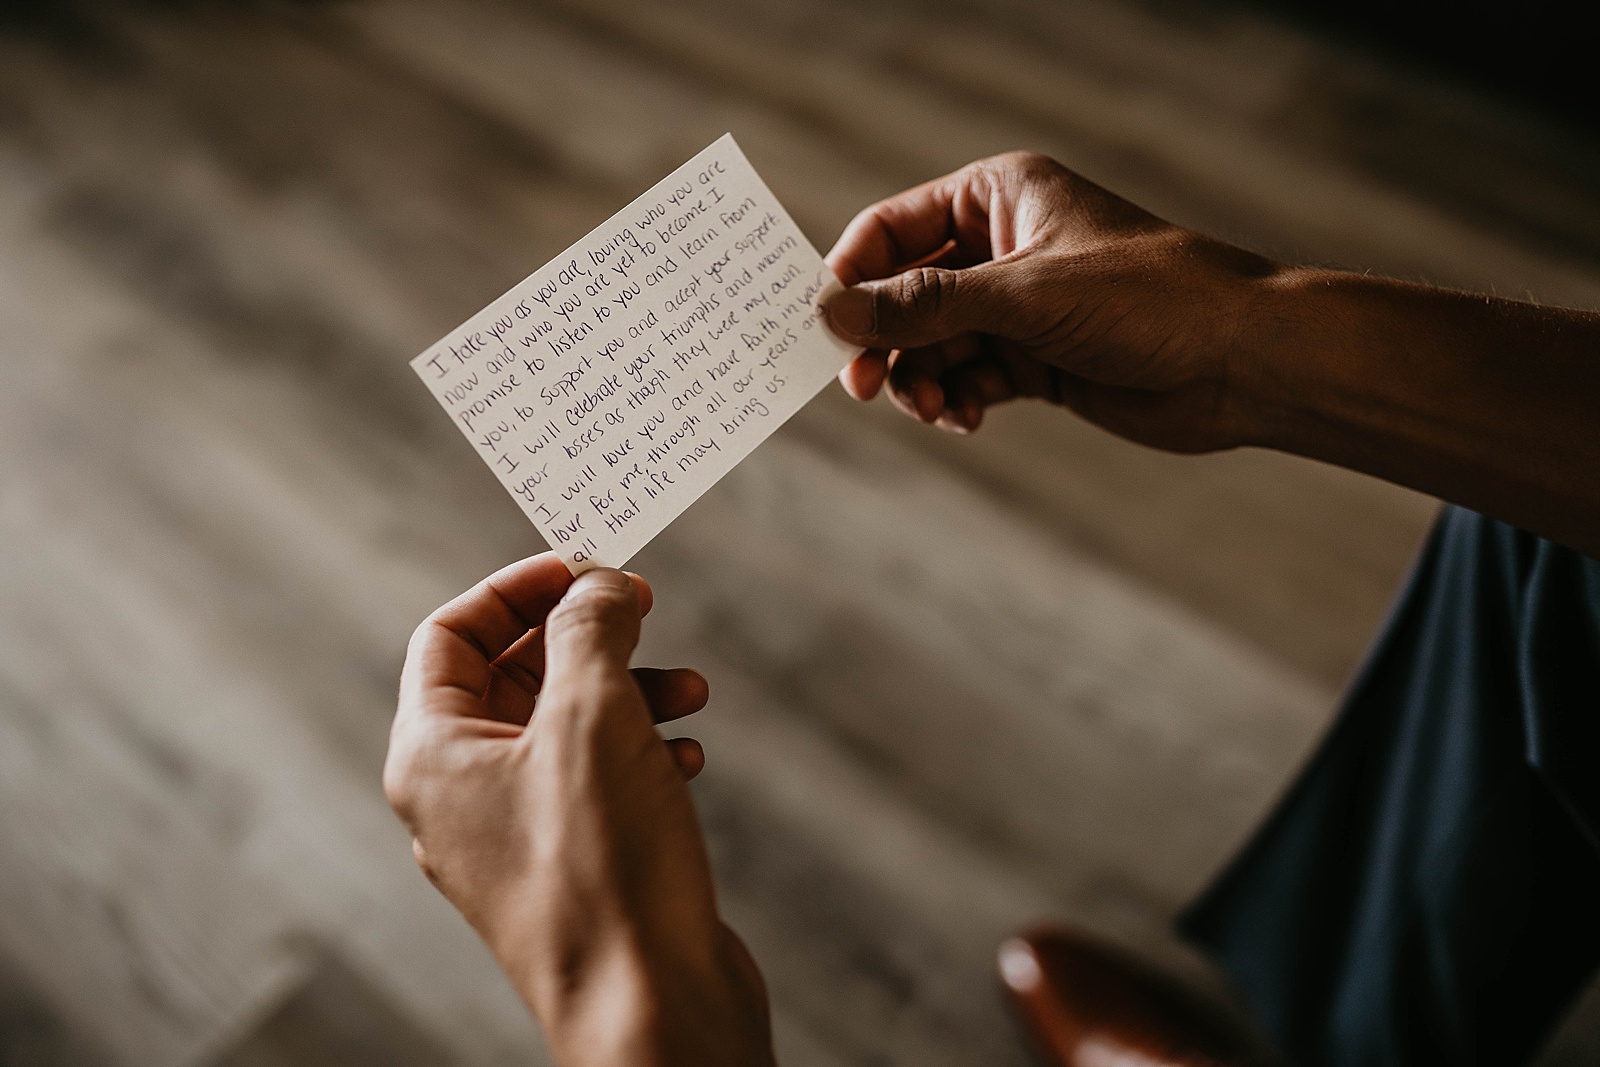 I take you as you are, loving who you are
now and who you are yet to become. I
promise to listen to you and learn from
you, to support you and accept your support.
I will celebrate your triumphs and mourn
your losses as though they were my own.
I will love you and have faith in your
love for me, through all our years and
all that life may bring us.